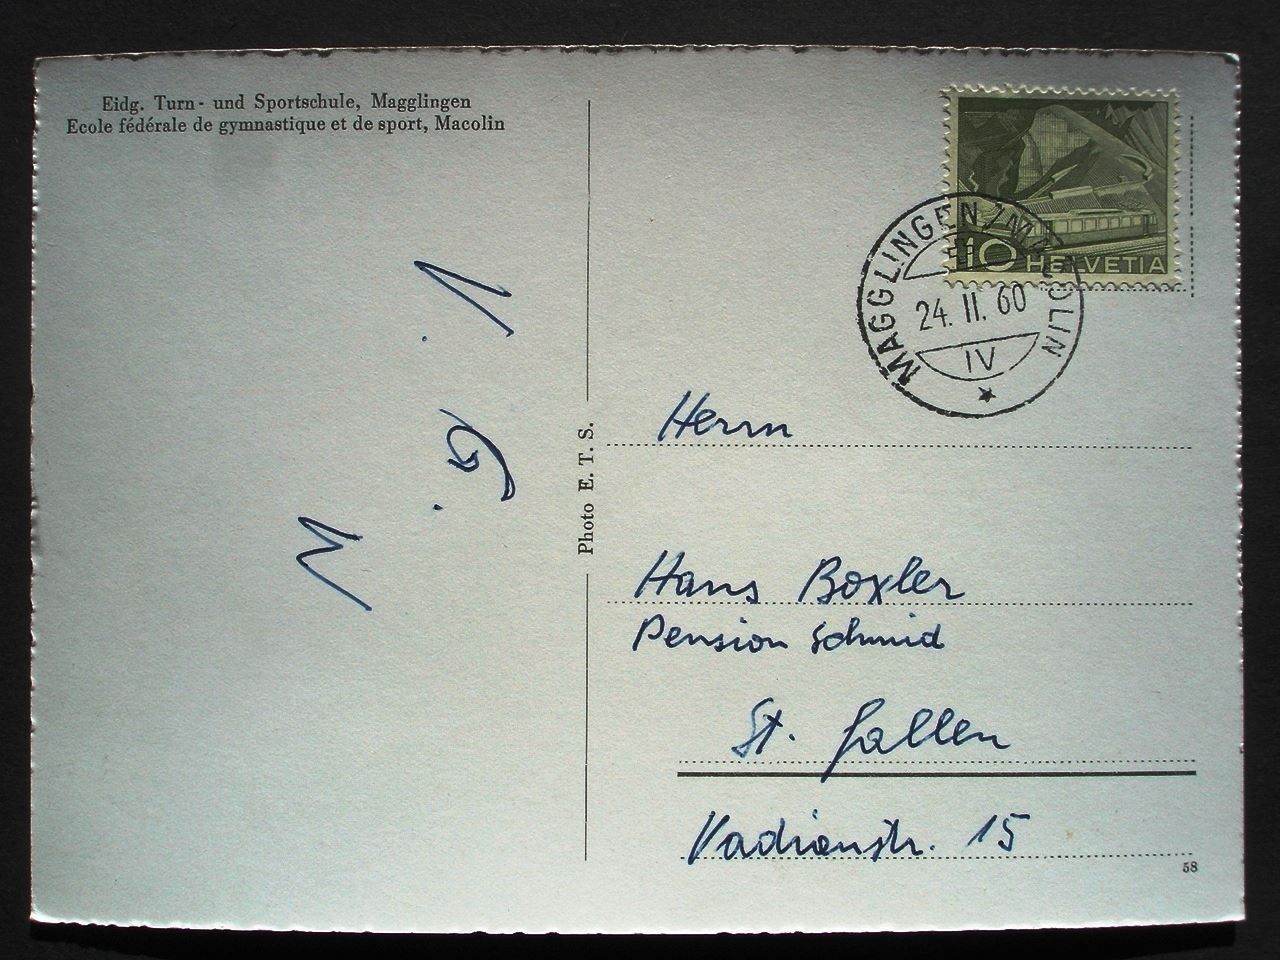 Eidg. Turn- und Sportschule, Magglingen
Ecole fédérale de gymnastique et de sport, Macolin
Photo E. T. S.
10 HELVETIA
MAGGLINGEN/MACOLIN
24. II. 60
IV
Herrn
Hans Boxler
Pension Schmid
St. Gallen
Vadianstr. 15
58